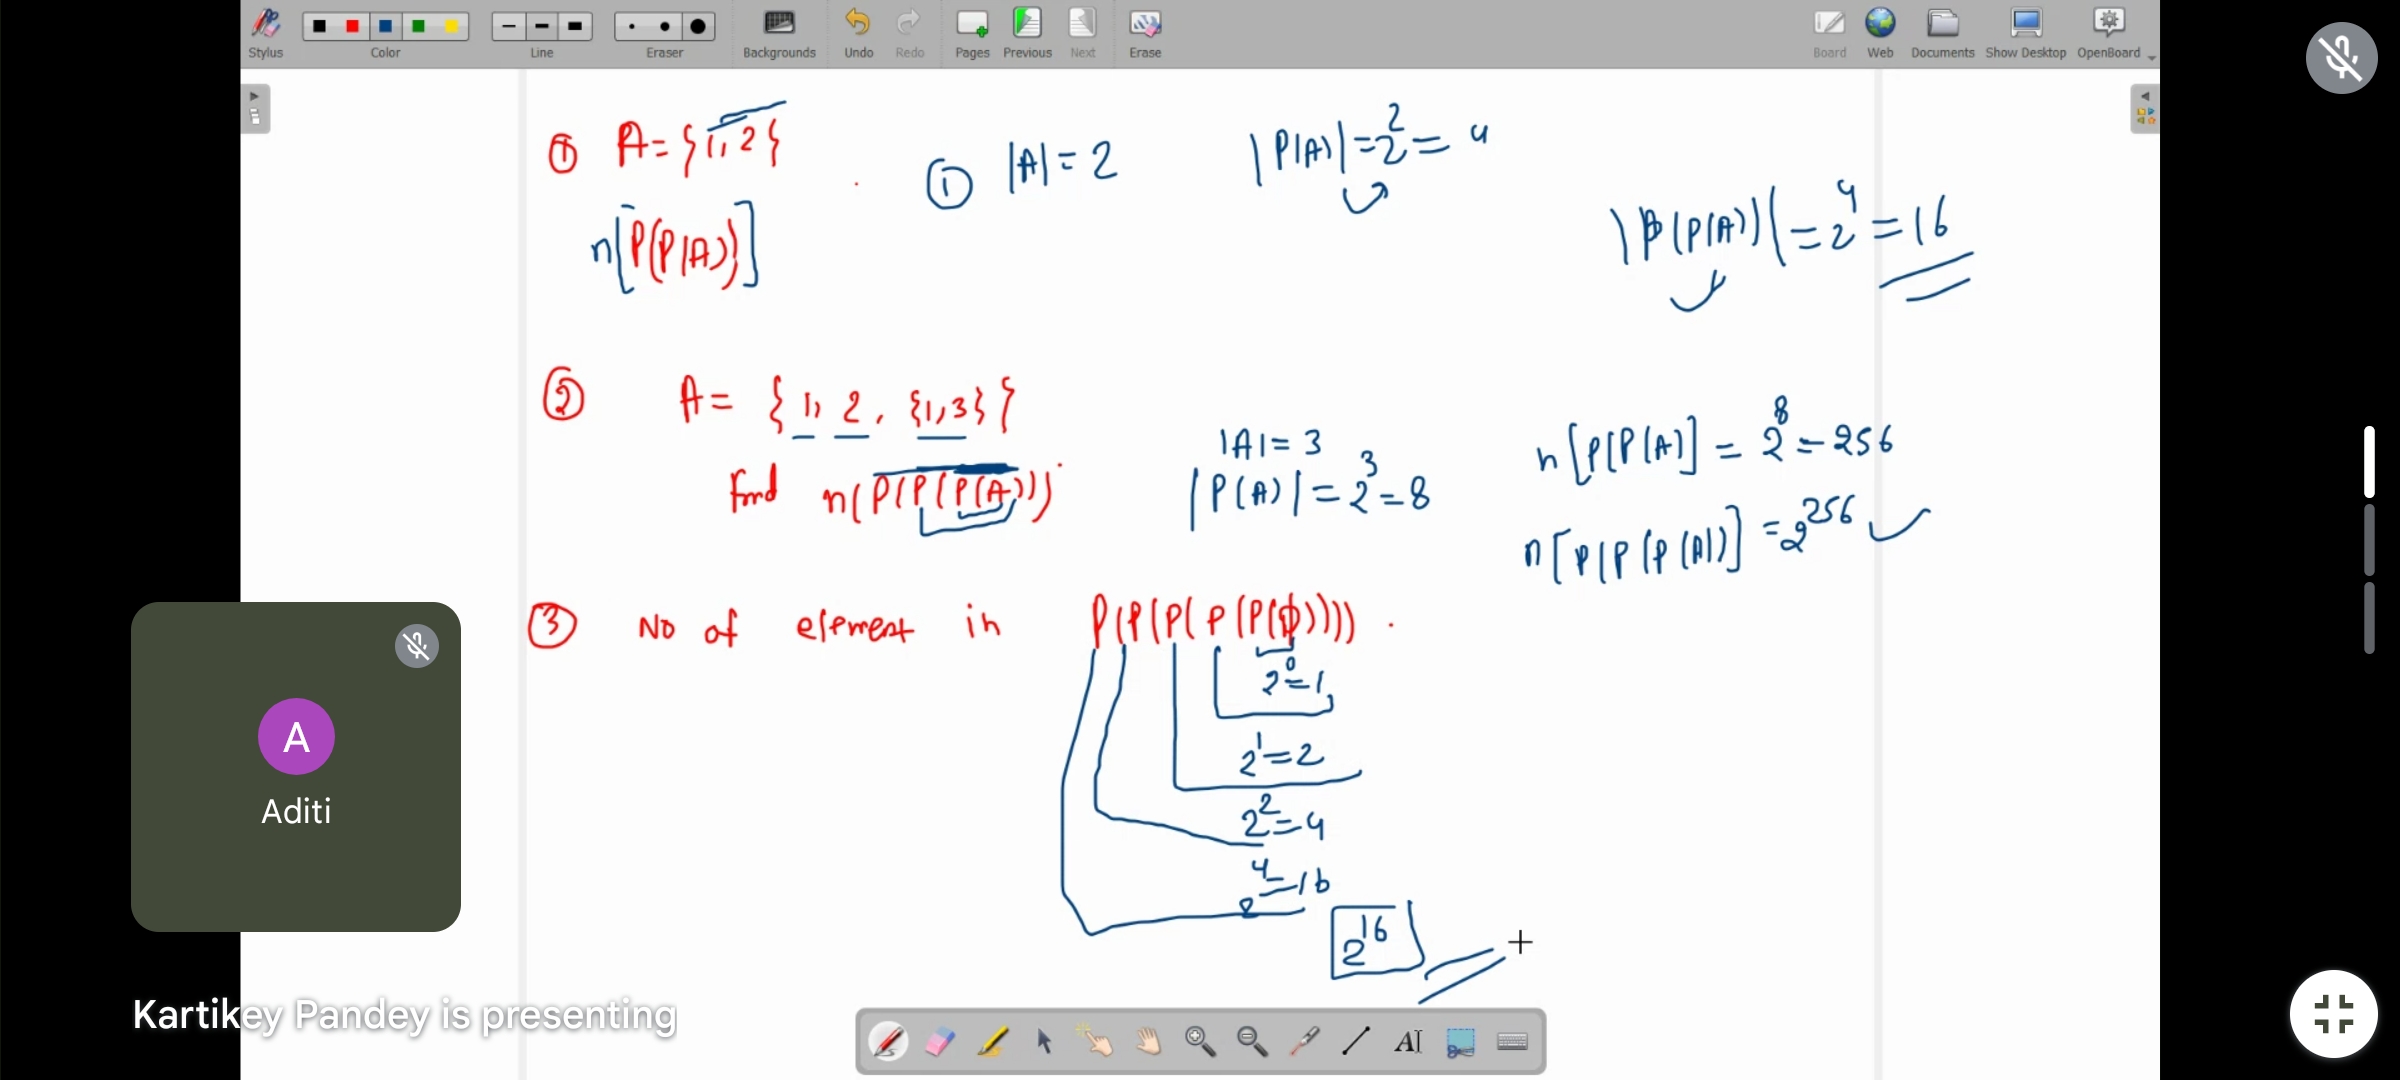 Stylus Color Line Eraser Backgrounds Undo Redo Pages Previous Next Erase Board Web Documents Show Desktop OpenBoard
① A = {1, 2}
n[P(P(A))]
① |A| = 2
|P(A)| = 2² = 4
|P(P(A))| = 2⁴ = 16
② A = {1, 2, {1,3}}
Find n(P(P(P(A))))
|A| = 3
|P(A)| = 2³ = 8
n[P[P(A)] = 2⁸ = 256
n[P(P(P(A))] = 2²⁵⁶
③ No of element in P(P(P(P(P(ϕ))))) .
2⁰ = 1
2¹ = 2
2² = 4
2⁴ = 16
2¹⁶
A
Aditi
Kartikey Pandey is presenting
AI